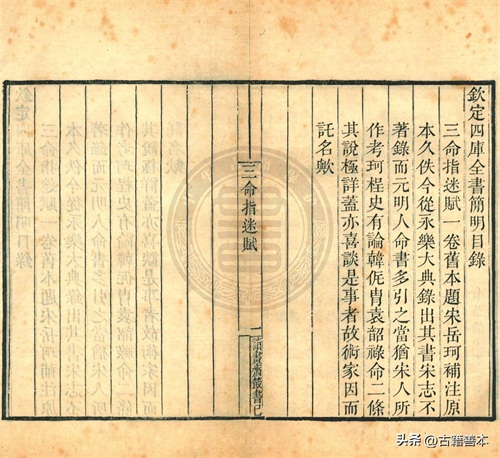 欽定四庫全書簡明目錄
三命指迷賦一卷舊本題宋岳珂補注原
本久佚今從永樂大典錄出其書宋志不
著錄而元明人命書多引之當猶宋人所
作考珂桯史有論韓侂冑袁韶祿命二條
其說極詳蓋亦喜談是事者故術家因而
託名歟
三命指迷賦
一
叢書己
头条 @古籍善本